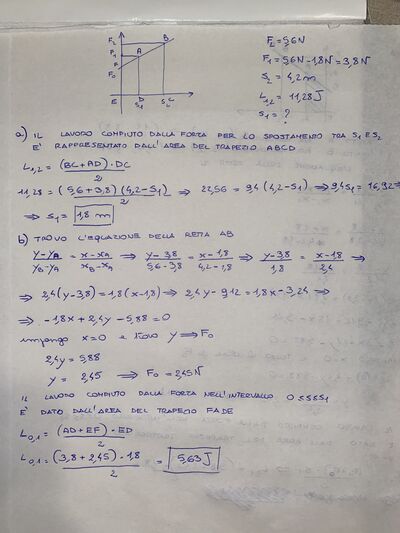 F₂
F₁
F
F₀
A
B
E
D
C
S₁
S₂
F₂ = 5,6N
F₁ = 5,6N - 1,8N = 3,8N
S₂ = 4,2 m
L₁,₂ = 11,28 J
S₁ = ?
a) IL LAVORO COMPIUTO DALLA FORZA PER LO SPOSTAMENTO TRA S₁ E S₂
E' RAPPRESENTATO DALL'AREA DEL TRAPEZIO ABCD
L₁,₂ = (BC + AD) · DC / 2
11,28 = (5,6 + 3,8)(4,2 - S₁) / 2 ⇒ 22,56 = 9,4 (4,2 - S₁) ⇒ 9,4 S₁ = 16,92 ⇒
⇒ S₁ = 1,8 m
b) TROVO L'EQUAZIONE DELLA RETTA AB
y - yA / yB - yA = x - xA / xB - xA ⇒ y - 3,8 / 5,6 - 3,8 = x - 1,8 / 4,2 - 1,8 ⇒ y - 3,8 / 1,8 = x - 1,8 / 2,4 ⇒
⇒ 2,4 (y - 3,8) = 1,8 (x - 1,8) ⇒ 2,4 y - 9,12 = 1,8 x - 3,24 ⇒
⇒ -1,8x + 2,4y - 5,88 = 0
impongo x = 0 e trovo y ⇒ F₀
2,4 y = 5,88
y = 2,45 ⇒ F₀ = 2,45 N
IL LAVORO COMPIUTO DALLA FORZA NELL'INTERVALLO 0 ≤ S ≤ S₁
E' DATO DALL'AREA DEL TRAPEZIO FADE
L₀,₁ = (AD + EF) · ED / 2
L₀,₁ = (3,8 + 2,45) · 1,8 / 2 = 5,63 J